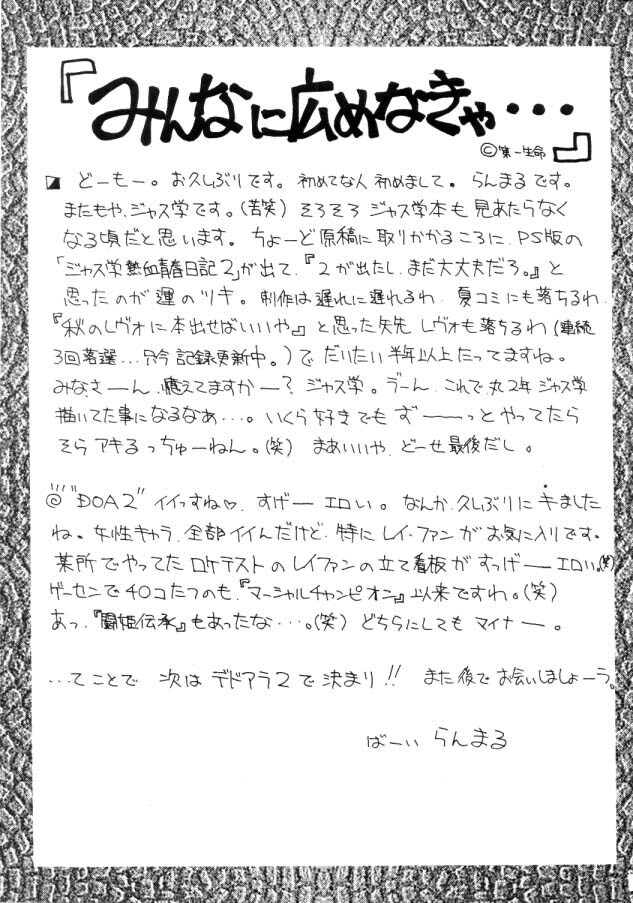 『みんなに広めなきゃ・・・』
©第一生命
どーもー。お久しぶりです。初めてな人初めまして。らんまるです。
またもや、ジャス学です。(苦笑) そろそろ ジャス学本も 見あたらなく
なる頃だと思います。ちょーど原稿に取りかかるころに、PS版の
「ジャス学熱血青春日記2」が出て、『2が出たし、まだ大丈夫だろ。』と
思ったのが運のツキ。制作は遅れに遅れるわ、夏コミにも落ちるわ、
『秋のレヴォに本出せばいいや』と思った矢先 レヴォも落ちるわ(連続
3回落選…只今記録更新中。)で だいたい半年以上たってますね。
みなさーん、燃えてますかー?ジャス学。うーん、これで、丸2年ジャス学
描いてた事になるなあ…。いくら好きでも ずーーっとやってたら
そら アキるっちゅーねん。(笑) まあいいや、どーせ最後だし。
@"DOA2"イイっすね♡、すげーエロい。なんか、久しぶりにキました
ね。女性キャラ、全部イイんだけど、特にレイ・ファンがお気に入りです。
某所でやってたロケテストのレイファンの立て看板がすっげーエロい。(笑)
ゲーセンで40コたつのも、『マーシャルチャンピオン』以来ですわ。(笑)
あっ、『闘姫伝承』もあったな…。(笑) どちらにしてもマイナー。
…てことで 次はデドアラ2で決まり!! また後でお会いしましょーう。
ばーい らんまる